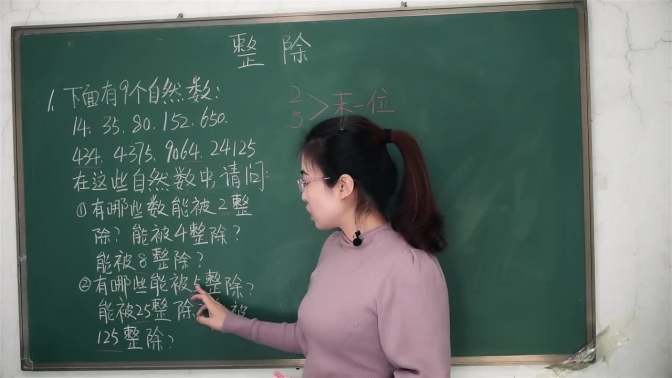 整除
1.下面有9个自然数:
14. 35. 80. 152. 650.
434. 4375. 9064. 24125
在这些自然数中,请问:
①有哪些数能被2整
除?能被4整除?
能被8整除?
②有哪些能被5整除?
能被25整除?
125整除?
2
5 > 末一位